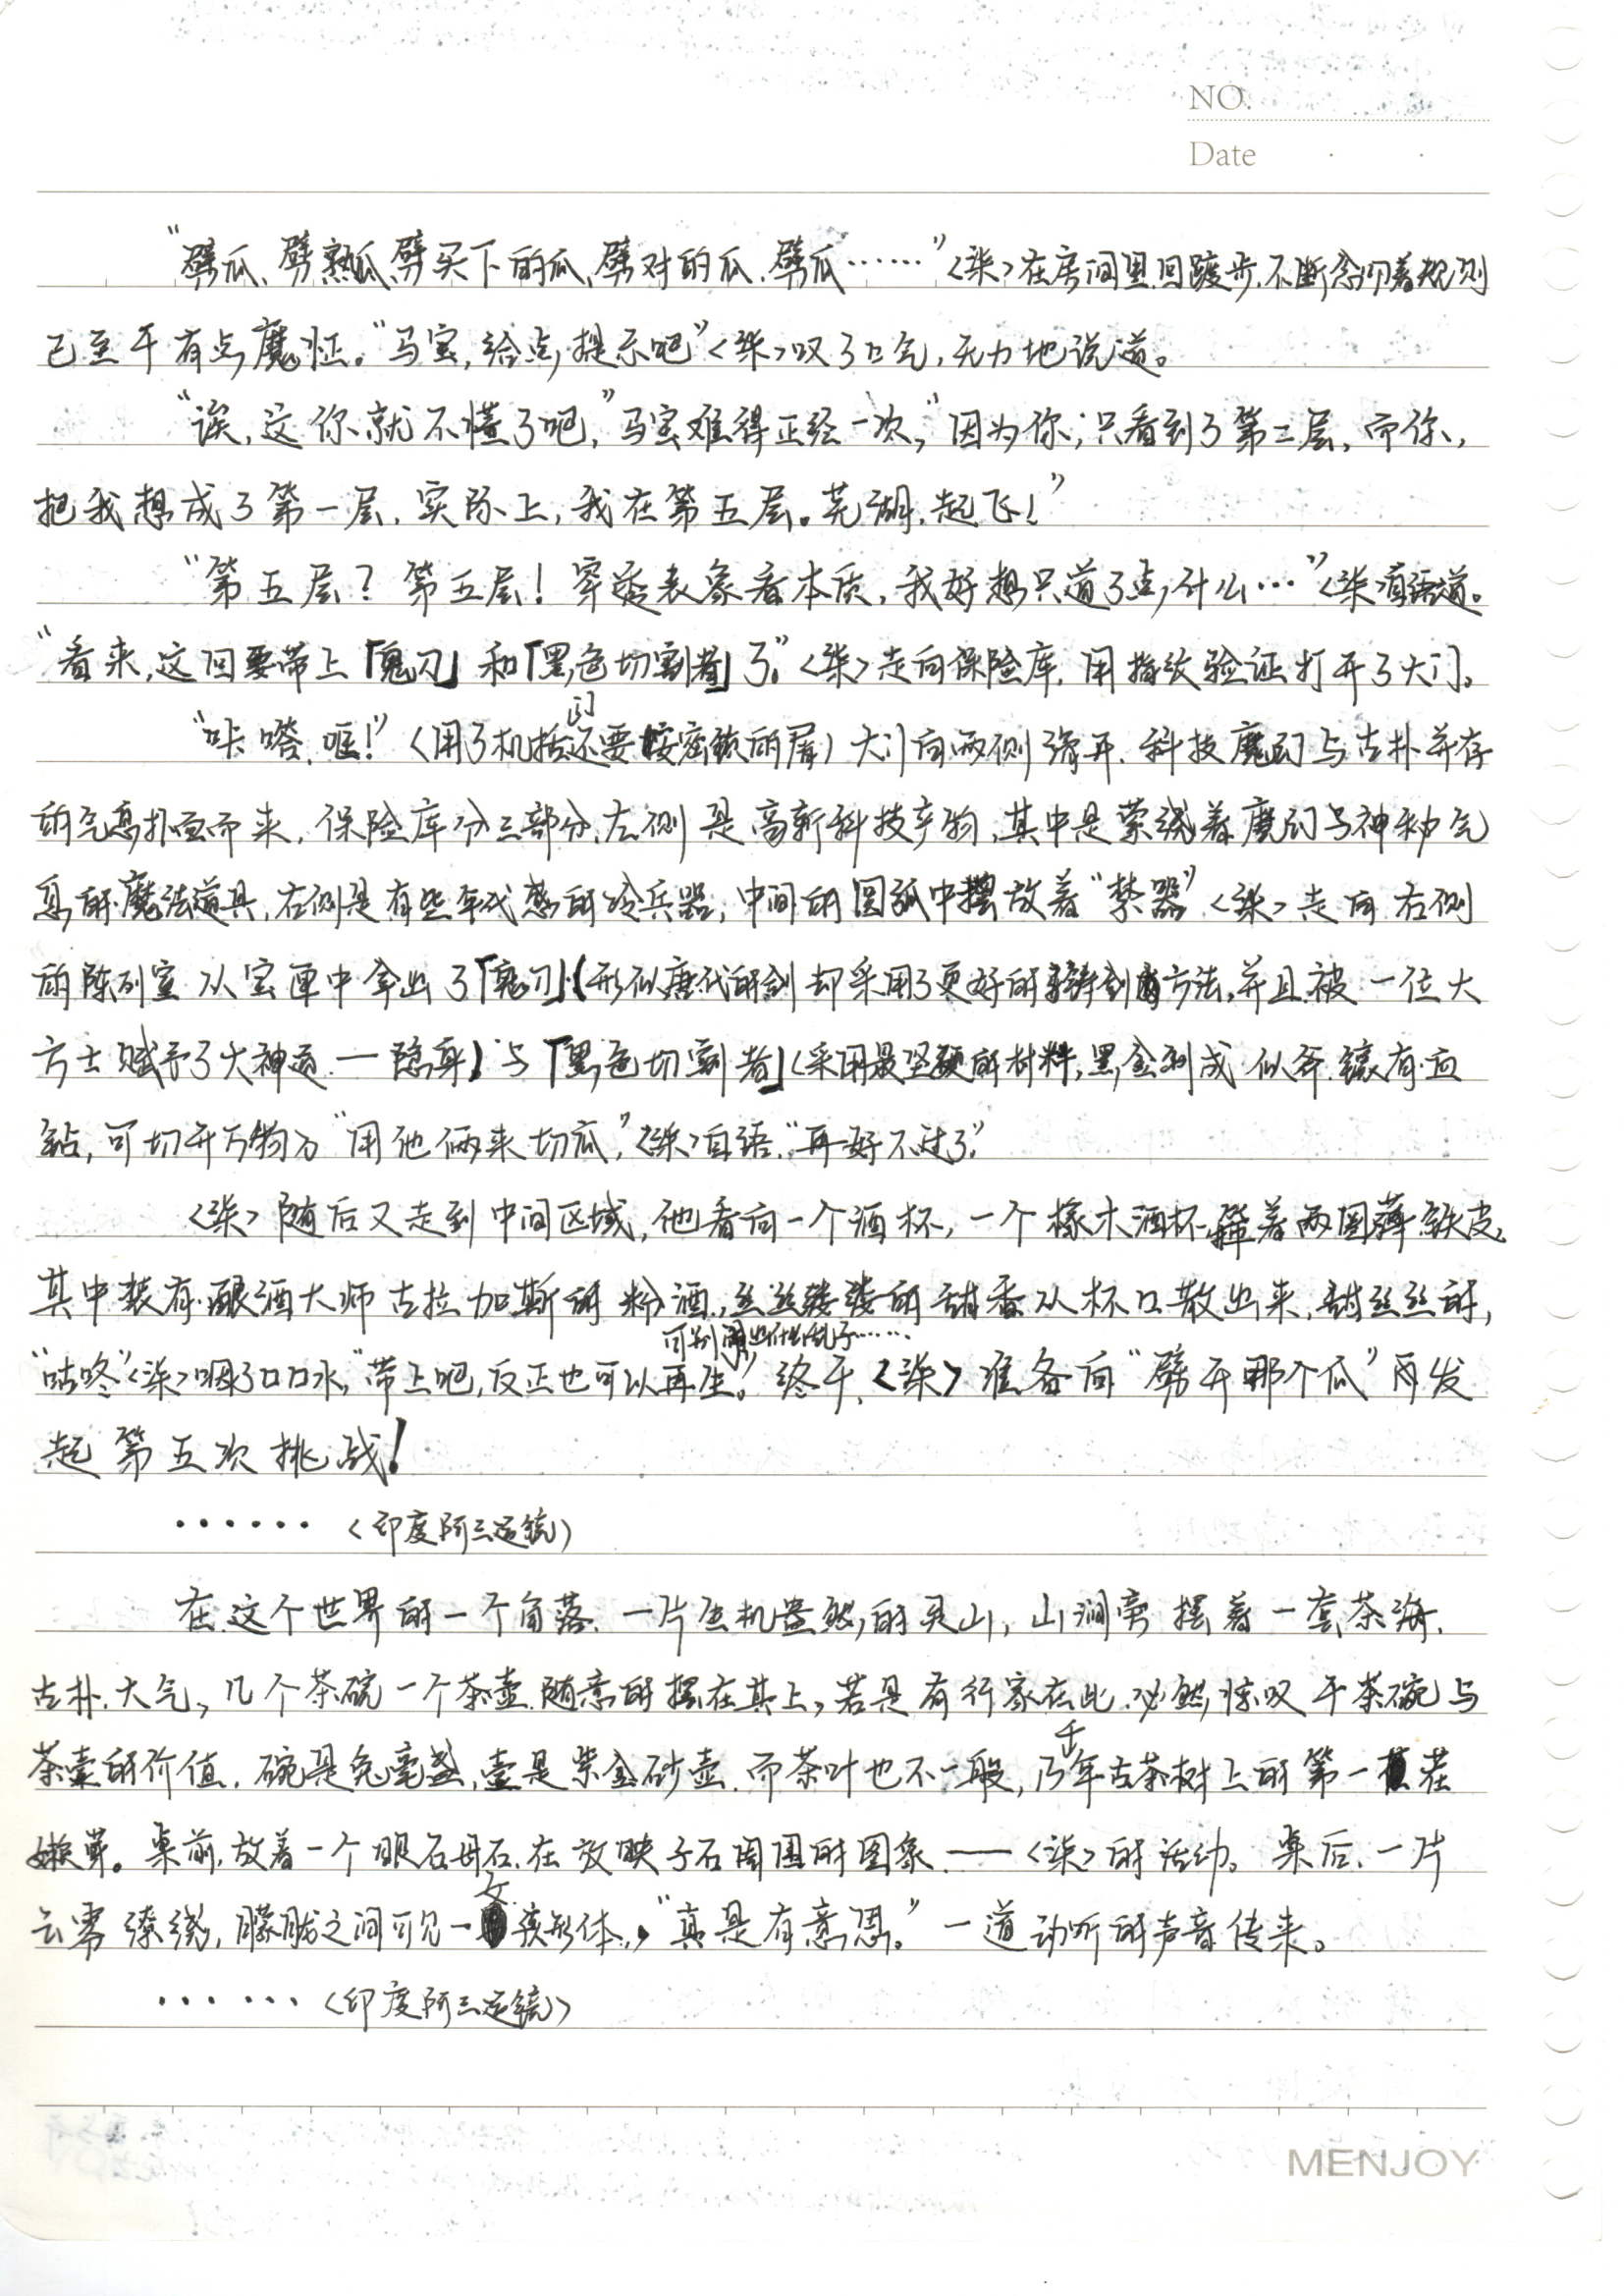 NO.
Date
“劈瓜、劈熟瓜、劈买下的瓜、劈对的瓜、劈瓜……”<柒>在房间里回踱步,不断念叨着规则
已至于有点魔怔。“马宝,给点提示吧”<柒>叹了口气,无力地说道。
“诶,这你就不懂了吧,”马宝难得正经一次,“因为你,只看到了第二层,而你,
把我想成了第一层,实际上,我在第五层。芜湖,起飞!”
“第五层?第五层!穿透表象看本质,我好想只道了点什么…”<柒>自语道。
“看来,这回要带上「鬼刃」和「黑色切割者」了。”<柒>走向保险库,用指纹验证打开了大门。
“咔嗒,哐!”(用了机括门还要按密锁的屑)大门向两侧滑开,科技魔幻与古朴并存
的气息扑面而来,保险库分三部分,左侧是高新科技产物,其中是萦绕着魔幻与神秘气
息的魔法道具,右侧是有些年代感的冷兵器,中间的圆弧中摆放着“禁器”<柒>走向右侧
的陈列室从宝匣中拿出了「鬼刃」(形似唐代的剑却采用了更好的铸剑方法,并且被一位大
方士赋予了大神通—隐身)与「黑色切割者」(采用最坚硬的材料,黑金制成似斧,镶有血
钻,可切开万物)“用他俩来切瓜,”<柒>自语,“再好不过了”
<柒>随后又走到中间区域,他看向一个酒杯,一个橡木酒杯,箍着两圈薄铁皮,
其中装有酿酒大师古拉加斯的粉酒,丝丝缕缕的甜香从杯口散出来,甜丝丝的,
“咕咚”<柒>咽了口口水,“带上吧,反正也可以再生。可别闹出什么乱子……”终于,<柒>准备向“劈开那个瓜”再发
起第五次挑战!
……<印度阿三运镜>
在这个世界的一个角落,一片生机盎然的灵山,山涧旁摆着一套茶海,
古朴,大气,几个茶碗一个茶壶随意的摆在其上,若是有行家在此,必然惊叹于茶碗与
茶壶的价值,碗是兔毫盏,壶是紫金砂壶,而茶叶也不一般,乃千年古茶树上的第一茬
嫩芽。桌前,放着一个眼石母石,在放映子石周围的图象——<柒>的活动。桌后,一片
云雾缭绕,朦胧之间可见一女孩形体,,“真是有意思。”一道动听的声音传来。
……<印度阿三运镜>
MENJOY